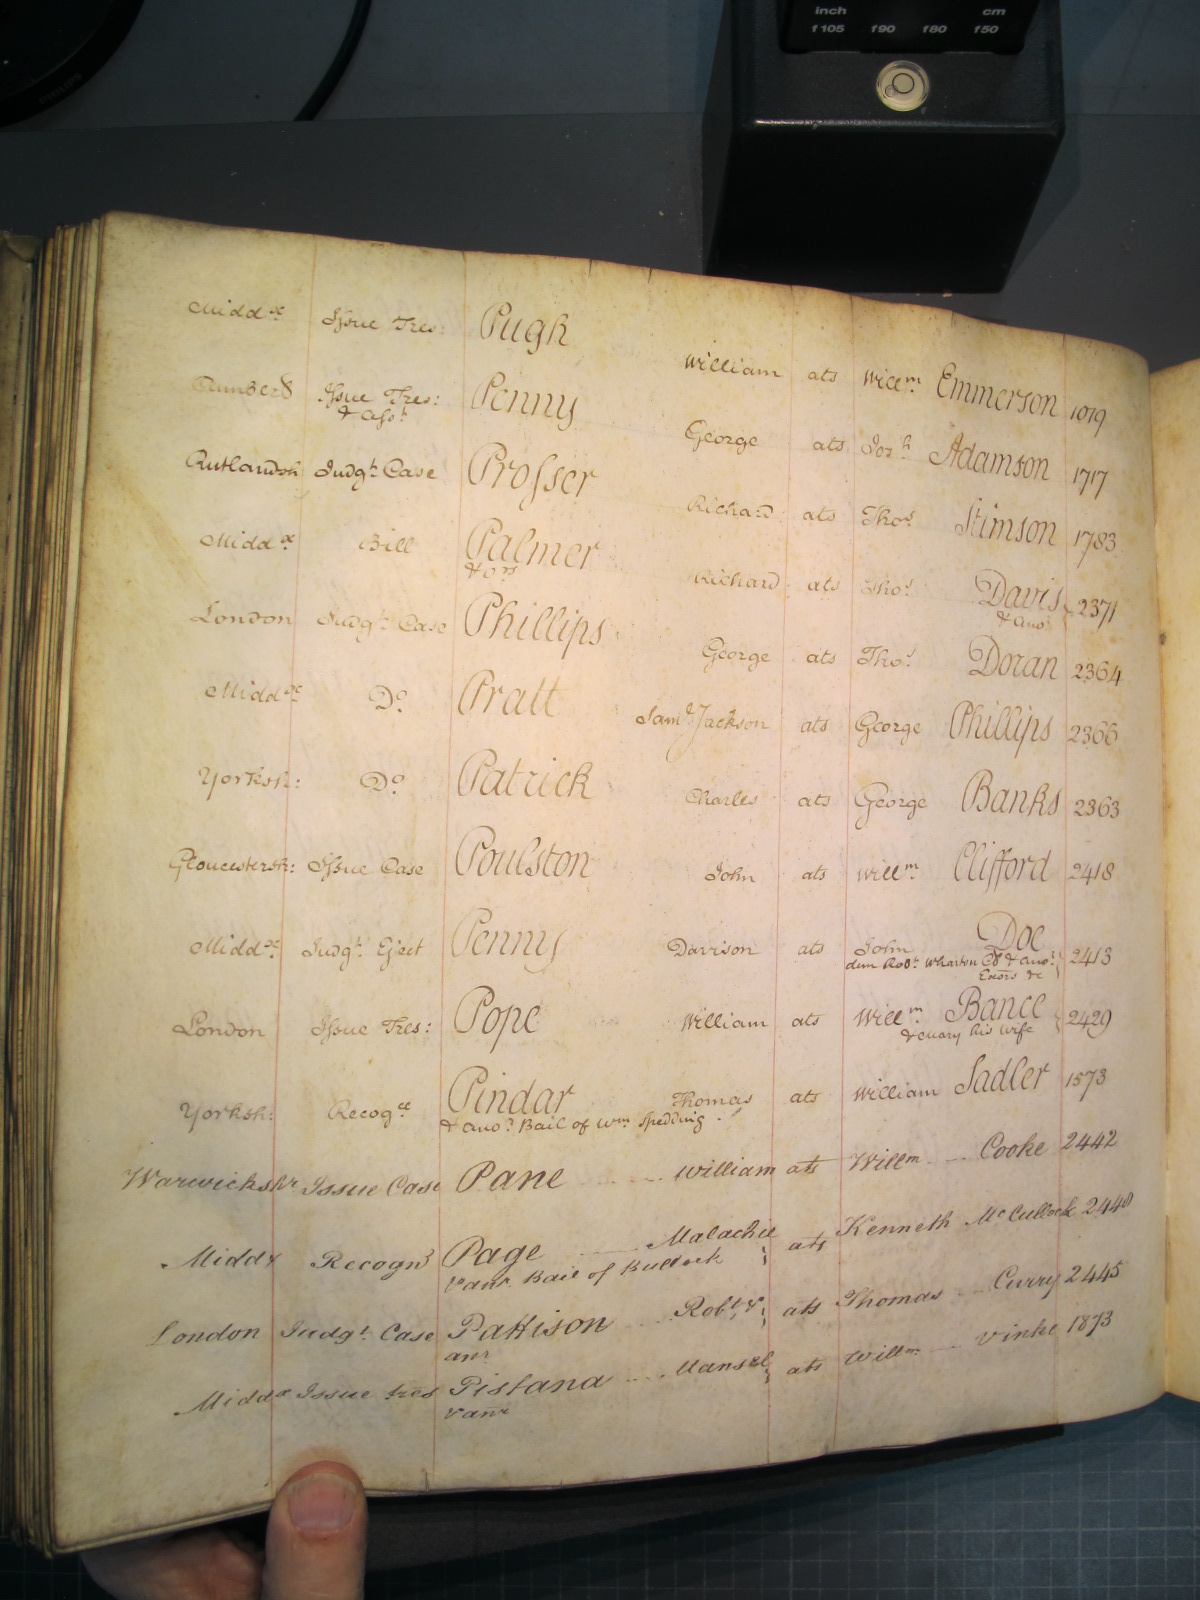 inch cm
1105 190 180 150
Middx Issue Tres: Pugh William ats Willm Emmerson 1019
Cumberd Issue Tres: Penny George ats Josh Adamson 1717
& Asst
Rutlandsh Judgt Case Prosser Richard ats Thos Stimson 1783
Middx Bill Palmer Richard ats Thos Davis 2371
& ors & anor
London Judgt Case Phillips George ats Thos Doran 2364
Middx Do Pratt Saml Jackson ats George Phillips 2366
Yorksh: Do Patrick Charles ats George Banks 2363
Gloucestersh: Issue Case Poulston John ats Willm Clifford 2418
Middx Judgt Eject Penny Davison ats John Doe 2413
dem Robt Wharton & anor
Exors &c
London Issue Tres: Pope William ats Willm Bance 2429
& Mary his wife
Yorksh: Recogce Pindar Thomas ats William Sadler 1573
& anor Bail of Wm Spedding
Warwickshr Issue Case Pane William ats Willm Cooke 2442
Middx Recogns Page Malachie ats Kenneth McCullock 2440
& anr Bail of Bullock
London Judgt Case Pattison Robt & ats Thomas Curry 2445
anr
Middx Issue tres Pistana Mansel ats Willm Vinke 1873
& anr